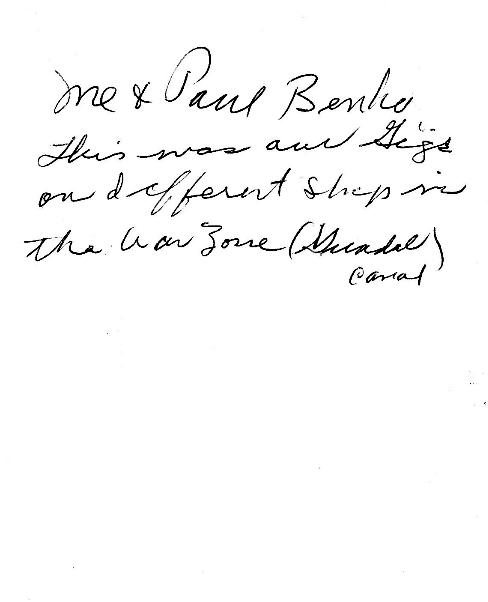 me & Paul Benko
This was our Gigs
on different ship in
the War Zone (Guadal)
canal